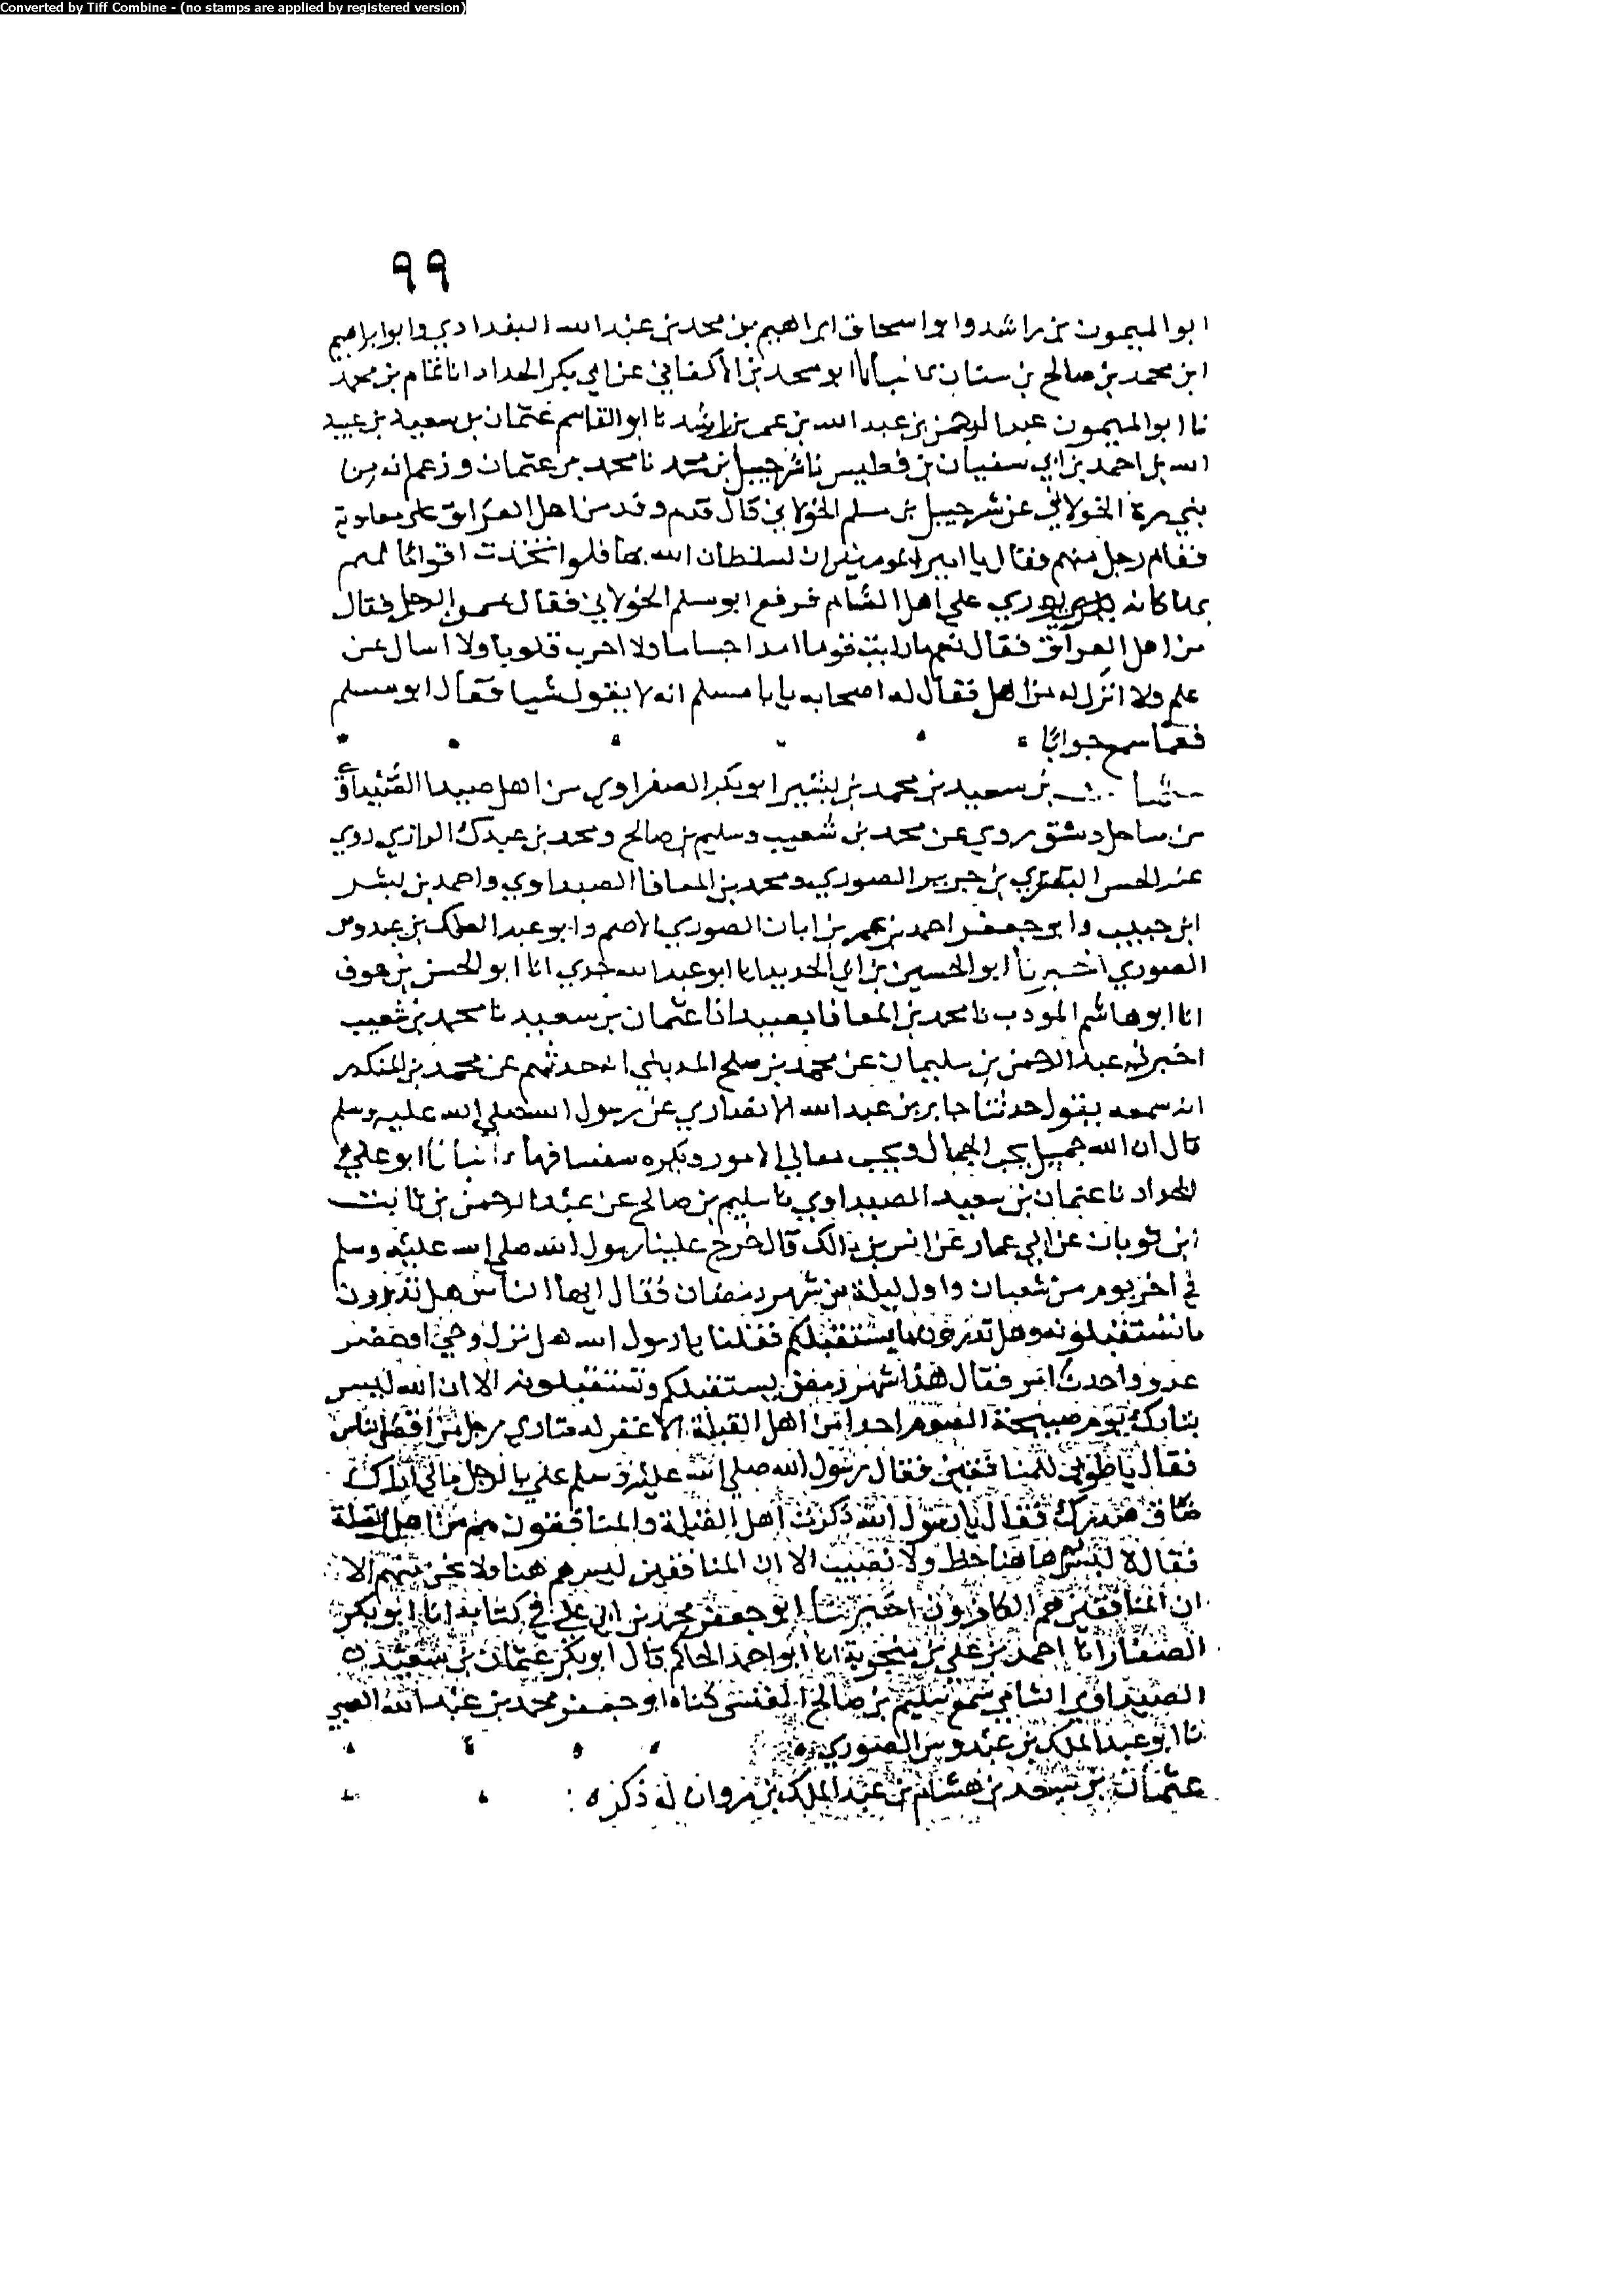 Converted by Tiff Combine - (no stamps are applied by registered version)
٩٩
ابو الميمون بن راشد وابو اسحاق ابراهيم بن محمد بن عبد الله البغدادي وابو ابراهيم
ابن محمد بن صالح بن سنان انبانا ابو محمد بن الاكفاني عن ابي بكر الحداد انا تمام بن محمد
نا ابو الميمون عبد الرحمن بن عبد الله بن عمر بن راشد نا ابو القاسم عثمان بن سعيد بن عبيد
الله بن احمد بن ابي سفيان بن فطيس نا شرحبيل بن محمد نا محمد بن عثمان وزعم انه من
بني مرة الخولاني عن شرحبيل بن مسلم الخولاني قال قدم وفد من اهل العراق على معاوية
فقام رجل منهم فقال يا امير المومنين ان لسلطان الله بها فلو اتخذت اقواما لهم
على اهل الشام فرفع ابو مسلم الخولاني فقال الرجل فقال
من اهل العراق فقال ما رايت قوما امد اجساما ولا اخرب قلوبا ولا اسال عن
علم ولا اترك له من اهل فقال له اصحابه يا با مسلم انه لا يقول شيا فقال ابو مسلم
سمع جوابا
بن سعيد بن محمد بن بشير ابو بكر الصفراوي من اهل صيدا
من ساحل دمشق روي عن محمد بن شعيب وسليم بن صالح ومحمد بن عبدك الرازي روي
عنه الحسن بن جرير الصوري ومحمد بن المعافا الصيداوي واحمد بن بشر
ابن حبيب وابو جعفر احمد بن عمر بن ابان الصوري الاصم وابو عبد الملك بن عبدوس
الصوري اخبرنا ابو الحسين بن ابي الحديد انا ابو عبد الله جدي انا ابو الحسن بن عوف
انا ابو هاشم المودب نا محمد بن المعافا بصيدا نا عثمان بن سعيد نا محمد بن شعيب
اخبرني عبد الرحمن بن سليمان عن محمد بن صلح المديني انه حدثهم عن محمد بن المنكدر
انه سمعه يقول حدثنا جابر بن عبد الله الانصاري عن رسول الله صلى الله عليه وسلم
قال ان الله جميل يحب الجمال ويحب معالي الامور ويكره سفسافها انبانا ابو علي
الحداد نا عثمان بن سعيد الصيداوي نا سليم بن صالح عن عبد الرحمن بن ثابت
ابن ثوبان عن ابي عمار عن انس بن مالك قال خرج علينا رسول الله صلى الله عليه وسلم
في اخر يوم من شعبان واول ليلة من شهر رمضان فقال ايها الناس هل تدرون
ما تستقبلونه وهل تدرون ما يستقبلكم فقلنا يا رسول الله هل نزل وحي او حضر
عدو او حدث امر فقال هذا شهر رمضن يستقبلكم وتستقبلونه الا ان الله ليس
بتارك يوم صبيحة الصوم احدا من اهل القبلة الا غفر له فنادي رجل من اقصى الناس
فقال يا طوبى للمنافقين فقال رسول الله صلى الله عليه وسلم علي بالرجل مالي اراك
ضاق صدرك فقال يا رسول الله ذكرت اهل القبلة والمنافقون هم من اهل القبلة
فقال لا ليس لهم هاهنا حظ ولا نصيب الا ان المنافقين ليس هم هنا ولا نحن منهم الا
ان المنافقين هم الكافرون اخبرنا ابو جعفر محمد بن ابي علي في كتابه انا ابو بكر
الصفار انا احمد بن علي بن منجوية انا ابو احمد الحاكم قال ابو بكر عثمان بن سعيد
الصيداوي الشامي سمع سليم بن صالح العنسي كناه ابو جعفر محمد بن عبد الله
نا ابو عبد الملك بن عبدوس الصوري
عثمان بن سعيد بن هشام بن عبد الملك بن مروان له ذكر